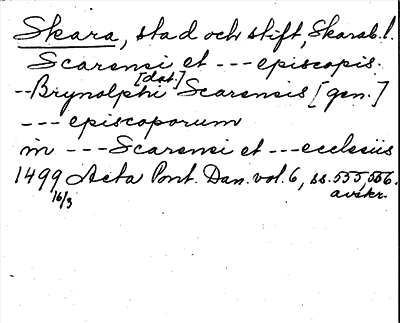 Skara, stad och stift, Skarab. l.
Scarensi et --- episcopis.
[dat.]
-- Brynolphi Scarensis [gen.]
--- episcoporum
in --- Scarensi et --- ecclesiis
1499 Acta Pont. Dan. vol. 6, ss. 555, 556.
16/3 avskr.